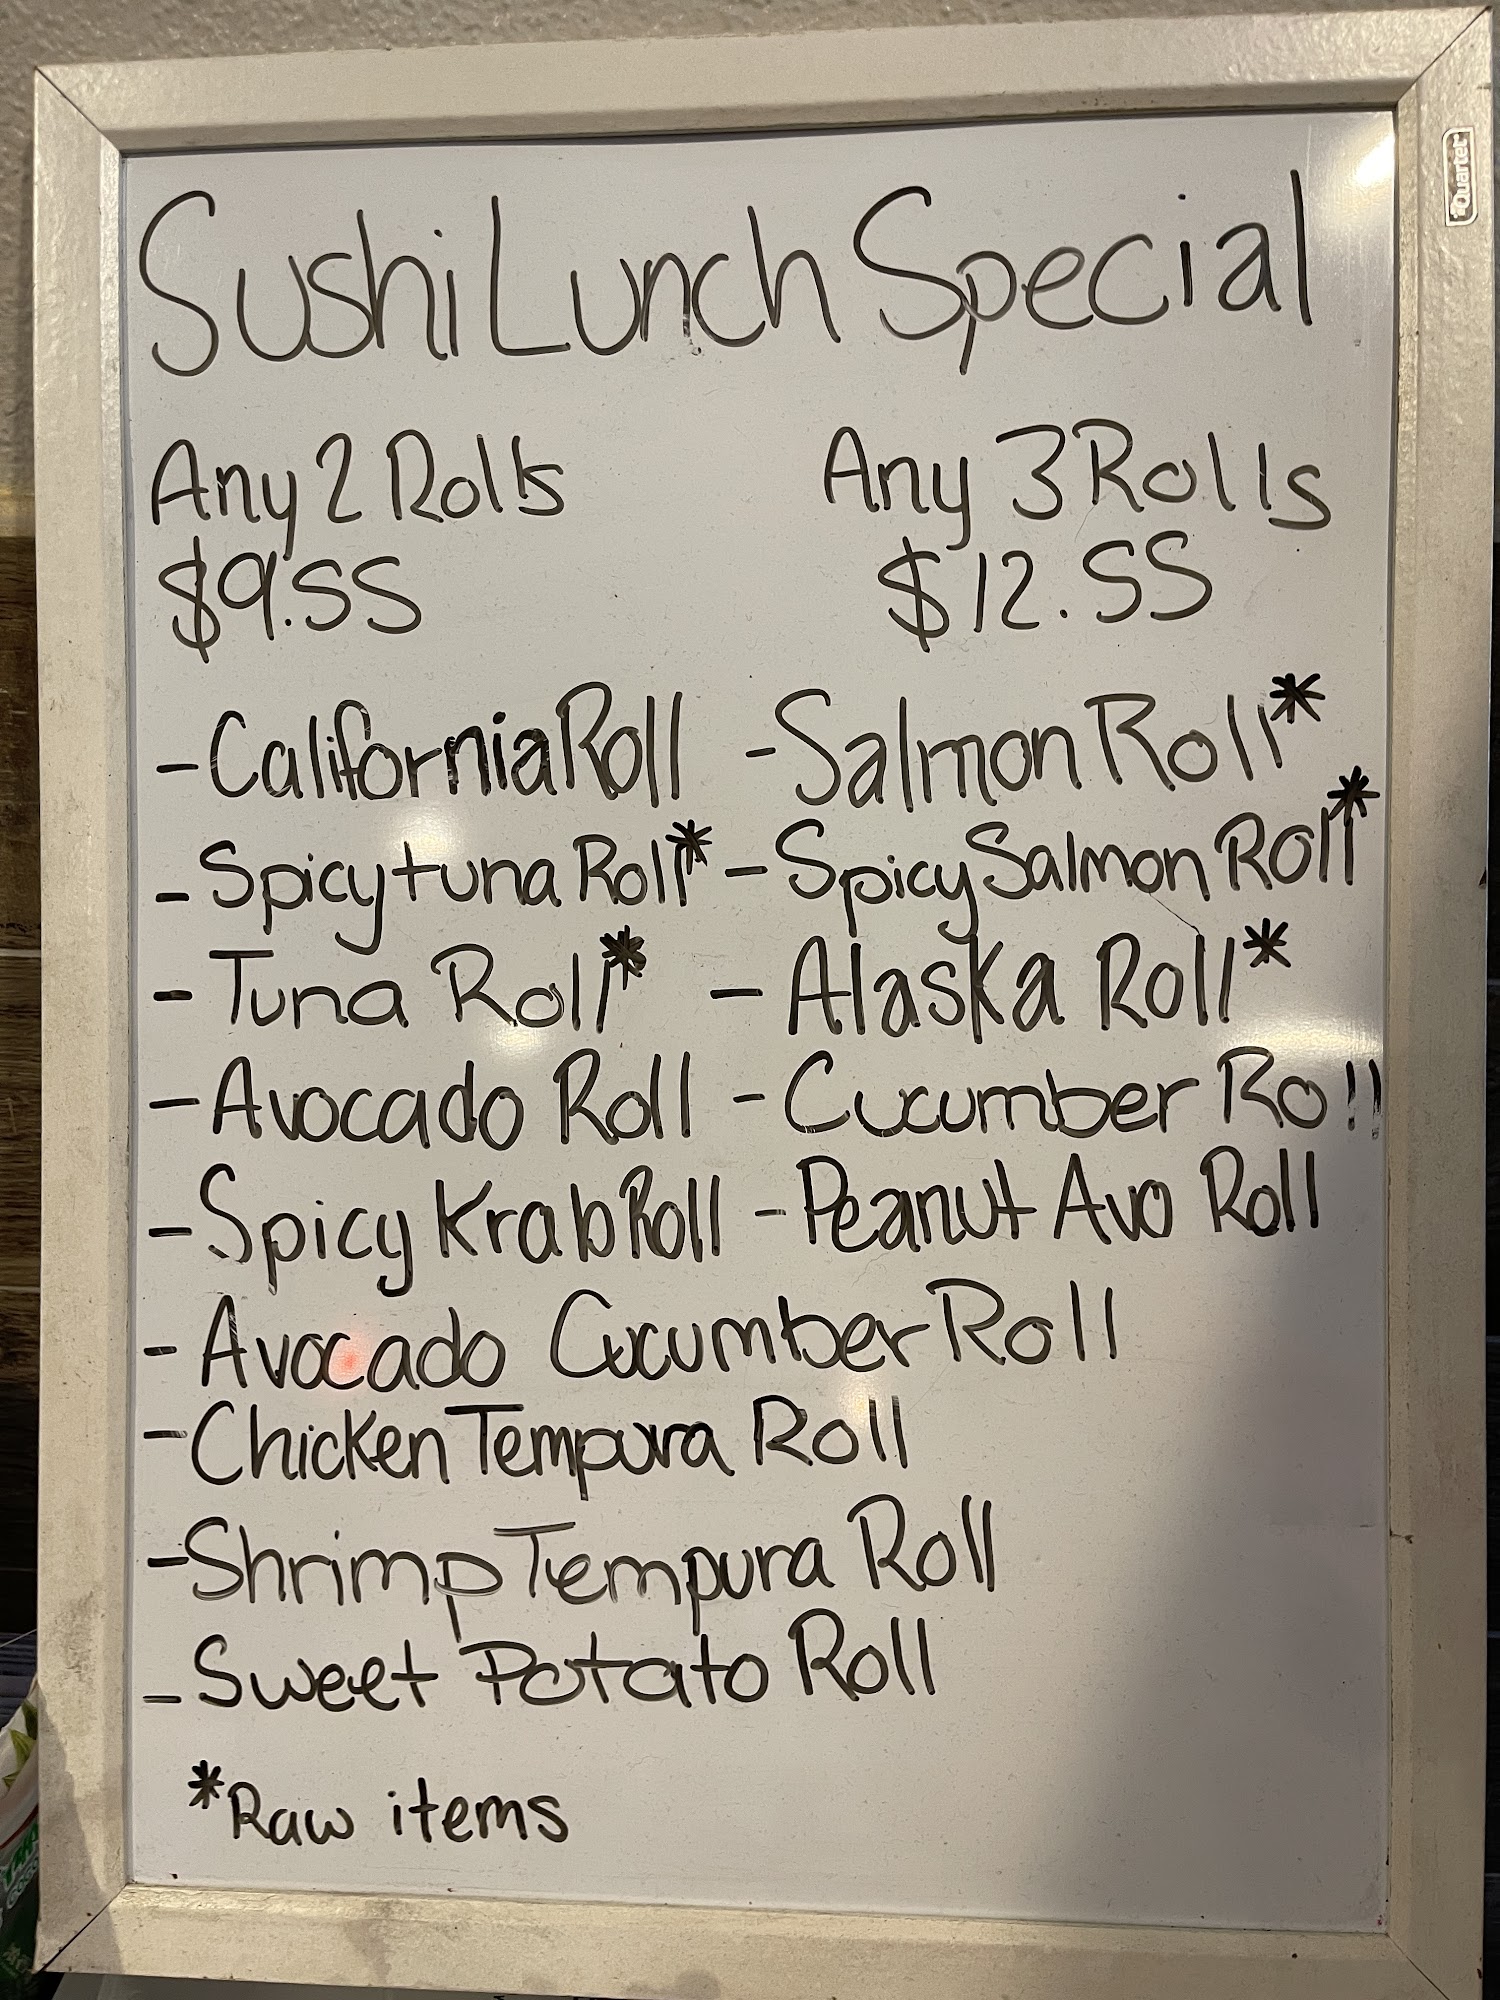 Sushi Lunch Special
Any 2 Rolls
$9.55
Any 3 Rolls
$12.55
- California Roll
- Salmon Roll*
- Spicy tuna Roll*
- Spicy Salmon Roll*
- Tuna Roll*
- Alaska Roll*
- Avocado Roll
- Cucumber Roll
- Spicy Krab Roll
- Peanut Avo Roll
- Avocado Cucumber Roll
- Chicken Tempura Roll
- Shrimp Tempura Roll
- Sweet Potato Roll
*Raw items
Quartet